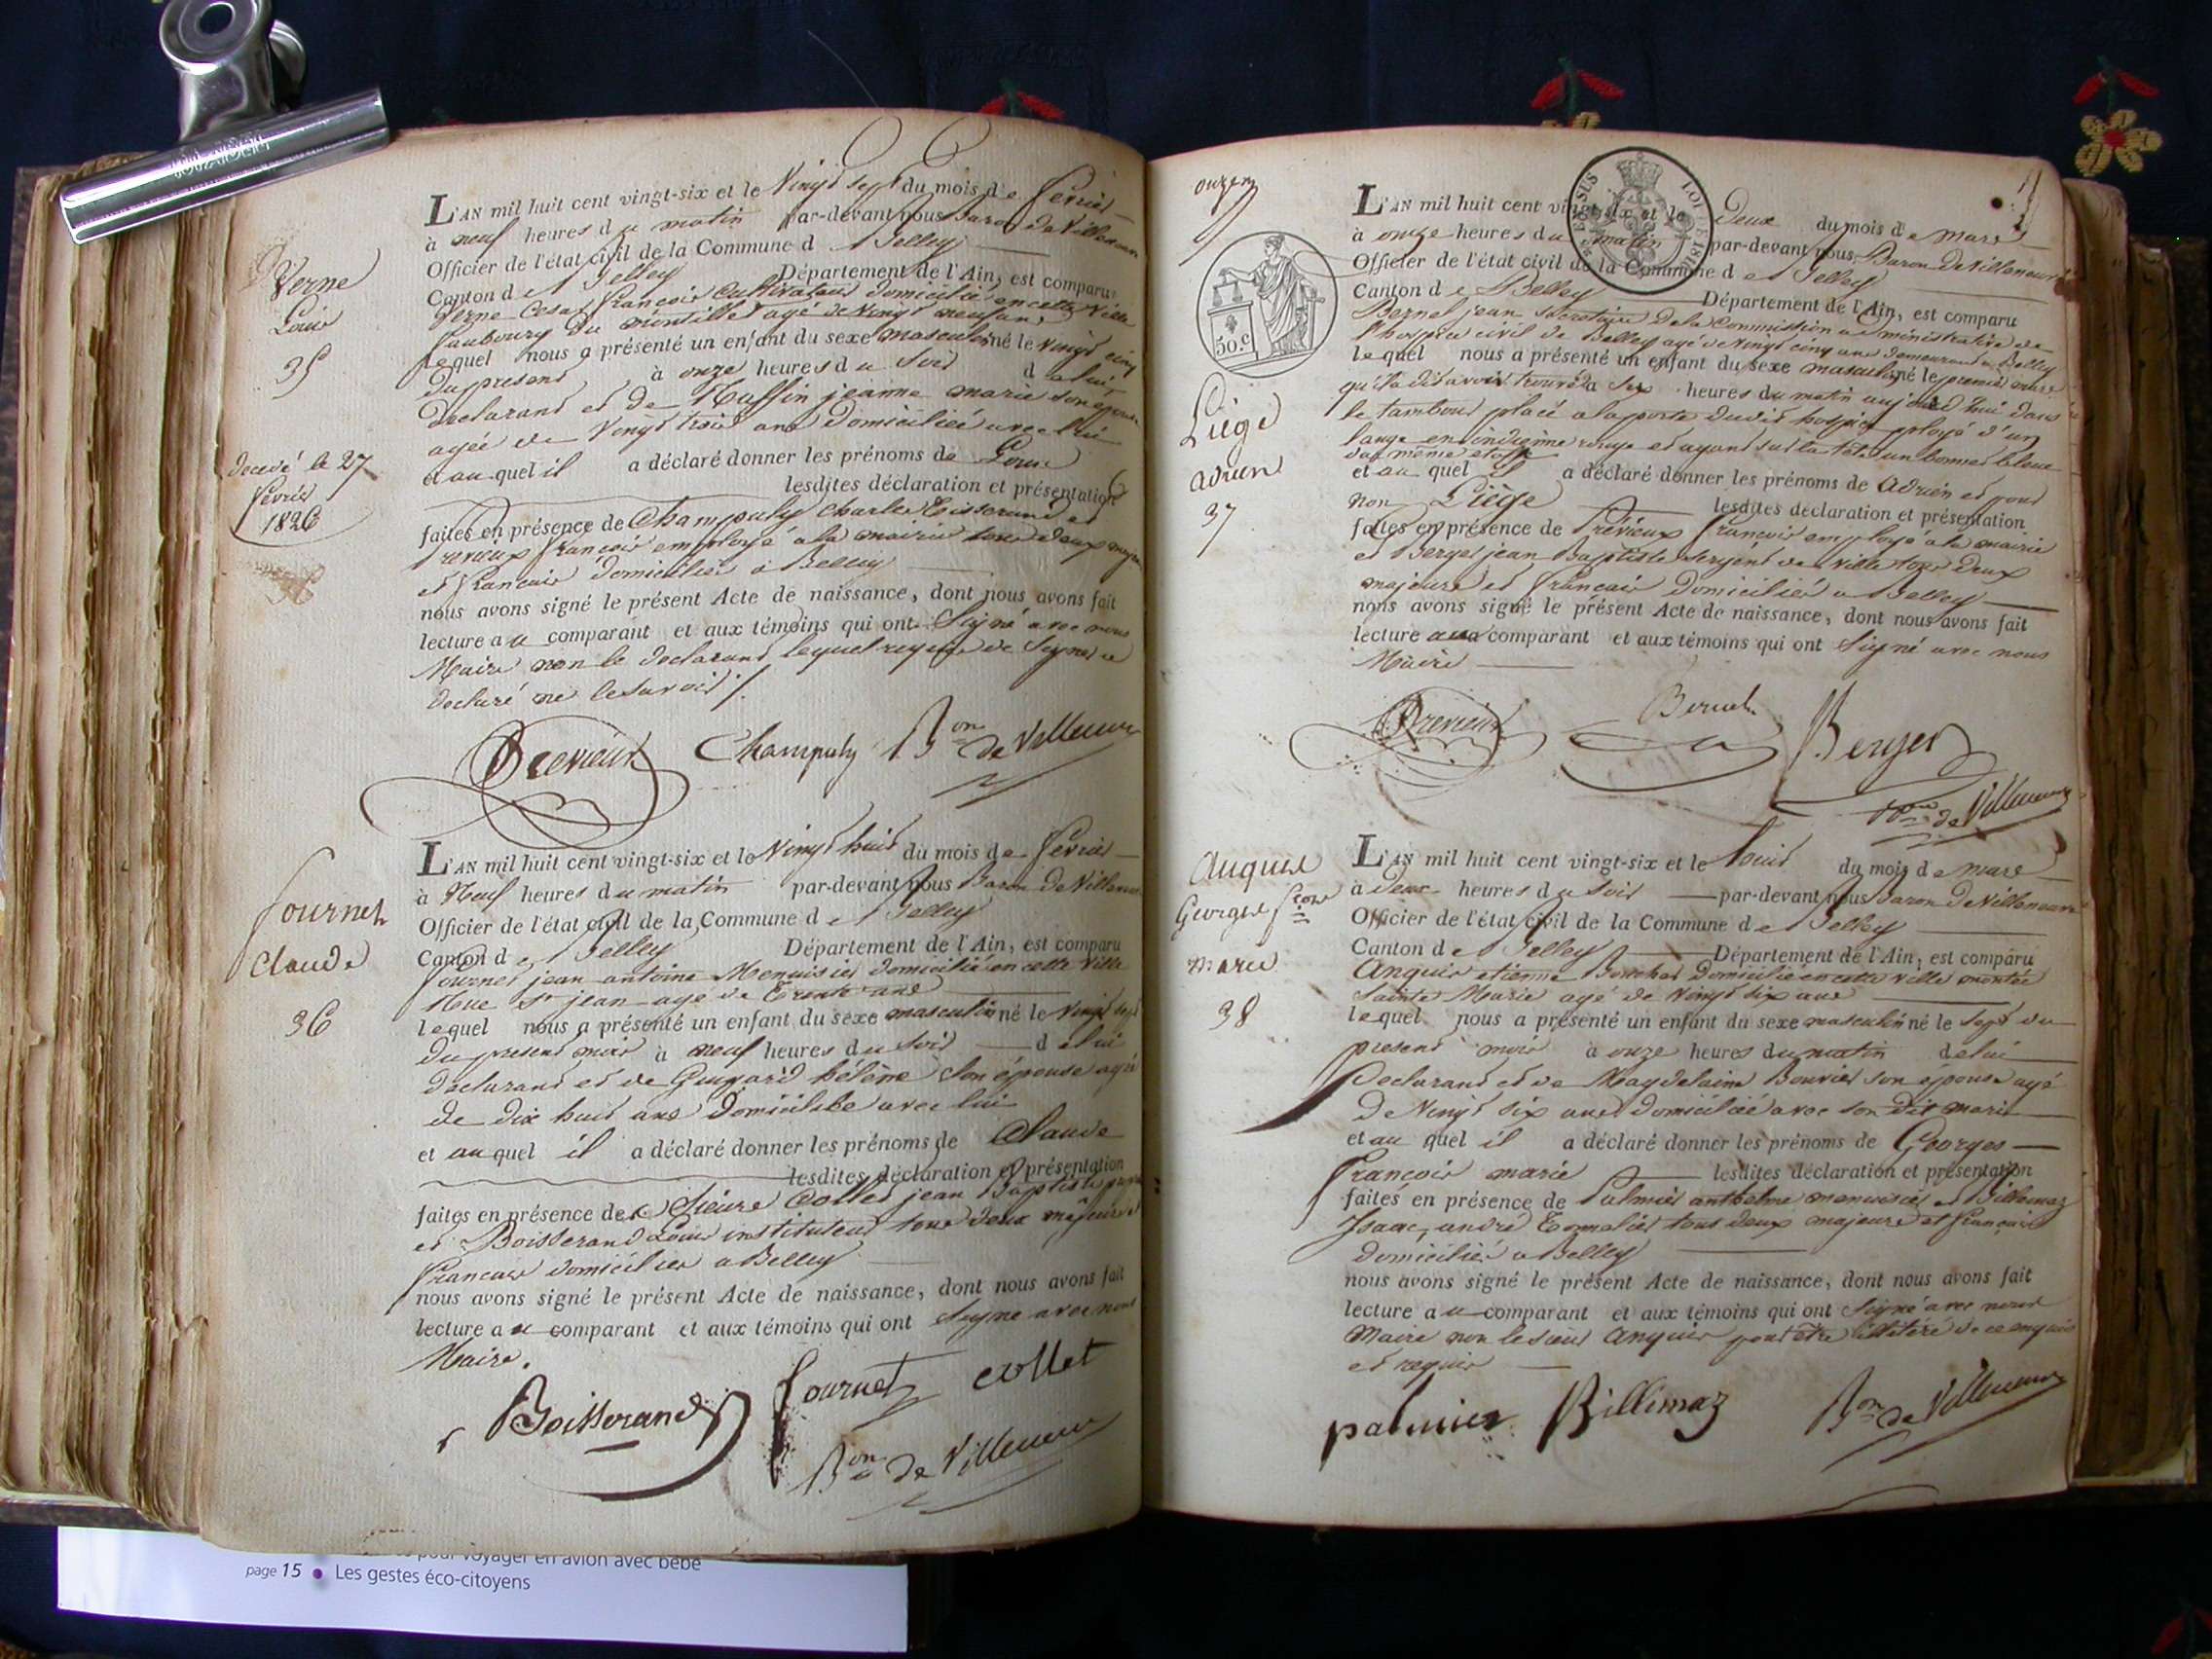 Verne
Louis
35
décédé le 27
février
1826
L'AN mil huit cent vingt-six et le vingt sept du mois de février
à neuf heures du matin par-devant nous Baron de Villeneuve
Officier de l'état civil de la Commune de Belley
Canton de Belley Département de l'Ain, est comparu
Verne Cesar françois Cultivateur domicilié en cette Ville
faubourg du agé de vingt neuf ans
lequel nous a présenté un enfant du sexe masculin né le vingt cinq
du present à onze heures du soir de lui
declarant et de jeanne marie son epouse
agée de vingt trois ans domiciliée avec lui
et au quel il a déclaré donner les prénoms de Louis
lesdites déclaration et présentation
faites en présence de Champuly Charles et
Previeux françois employé a la mairie tous deux majeurs
et francais domiciliés à Belley
nous avons signé le présent Acte de naissance, dont nous avons fait
lecture au comparant et aux témoins qui ont Signé avec nous
Maire non le declarant lequel requis de Signer a
declaré ne le savoir ./.
Previeux Champuly Bon de Villeneuve
fournet
Claude
36
L'AN mil huit cent vingt-six et le vingt huit du mois de février
à neuf heures du matin par-devant nous Baron de Villeneuve
Officier de l'état civil de la Commune de Belley
Canton de Belley Département de l'Ain, est comparu
fournet jean antoine Menuisier domicilié en cette Ville
Rue St jean agé de Trente ans
lequel nous a présenté un enfant du sexe masculin né le vingt sept
du present mois à neuf heures du soir de lui
declarant et de hélène son épouse agée
de dix huit ans domiciliée avec lui
et au quel il a déclaré donner les prénoms de Claude
lesdites déclaration et présentation
faites en présence de Sieurs Collet jean Baptiste
et Boisserand Louis instituteur tous deux majeurs et
francais domiciliés a Belley
nous avons signé le présent Acte de naissance, dont nous avons fait
lecture au comparant et aux témoins qui ont Signé avec nous
Maire.
Boisserand fournet collet
Bon de Villeneuve
page 15 • Les gestes éco-citoyens
pour voyager en avion avec bébé
onzem
50 c
Liège
adrien
37
L'AN mil huit cent vingt-six et le deux du mois de mars
à onze heures du matin par-devant nous Baron de Villeneuve
Officier de l'état civil de la Commune de Belley
Canton de Belley Département de l'Ain, est comparu
Bernet jean Secretaire de la Commission administrative de
l'hospice civil de Belley agé de vingt cinq ans demeurant a Belley
lequel nous a présenté un enfant du sexe masculin né le premier mars
qu'il a dit avoir trouvé à six heures du matin aujourd'hui dans
le tambour placé a la porte dudit hospice ployé d'un
lange en indienne rouge et ayant sur la tete un bonnet bleue
de meme etoffe
et au quel il a déclaré donner les prénoms de adrien et pour
nom Liège lesdites déclaration et présentation
faites en présence de Prévieux francois employé a la mairie
et Berger jean Baptiste Sergent de ville tous deux
majeurs et francais domiciliés a Belley
nous avons signé le présent Acte de naissance, dont nous avons fait
lecture au comparant et aux témoins qui ont Signé avec nous
Maire
Previeux Bernet Berger
Bon de Villeneuve
Anquis
Georges fcois
marie
38
L'AN mil huit cent vingt-six et le huit du mois de mars
à deux heures du soir par-devant nous Baron de Villeneuve
Officier de l'état civil de la Commune de Belley
Canton de Belley Département de l'Ain, est comparu
Anquis etienne Boucher domicilié en cette ville montée
Sainte Marie agé de vingt six ans
lequel nous a présenté un enfant du sexe masculin né le sept du
present mois à onze heures du matin de lui
Declarant et de Magdelaine Bouvier son epouse agé
de vingt six ans domiciliée avec son dit mari
et au quel il a déclaré donner les prénoms de Georges
francois marie lesdites déclaration et présentation
faites en présence de Palmier anthelme menuisier et Billemaz
Isaac, andré Tonnelier tous deux majeurs et francais
domiciliés a Belley
nous avons signé le présent Acte de naissance, dont nous avons fait
lecture au comparant et aux témoins qui ont Signé avec nous
Maire non le sieur Anquis pour etre illitéré de ce enquis
et requis
palmier Billemaz Bon de Villeneuve